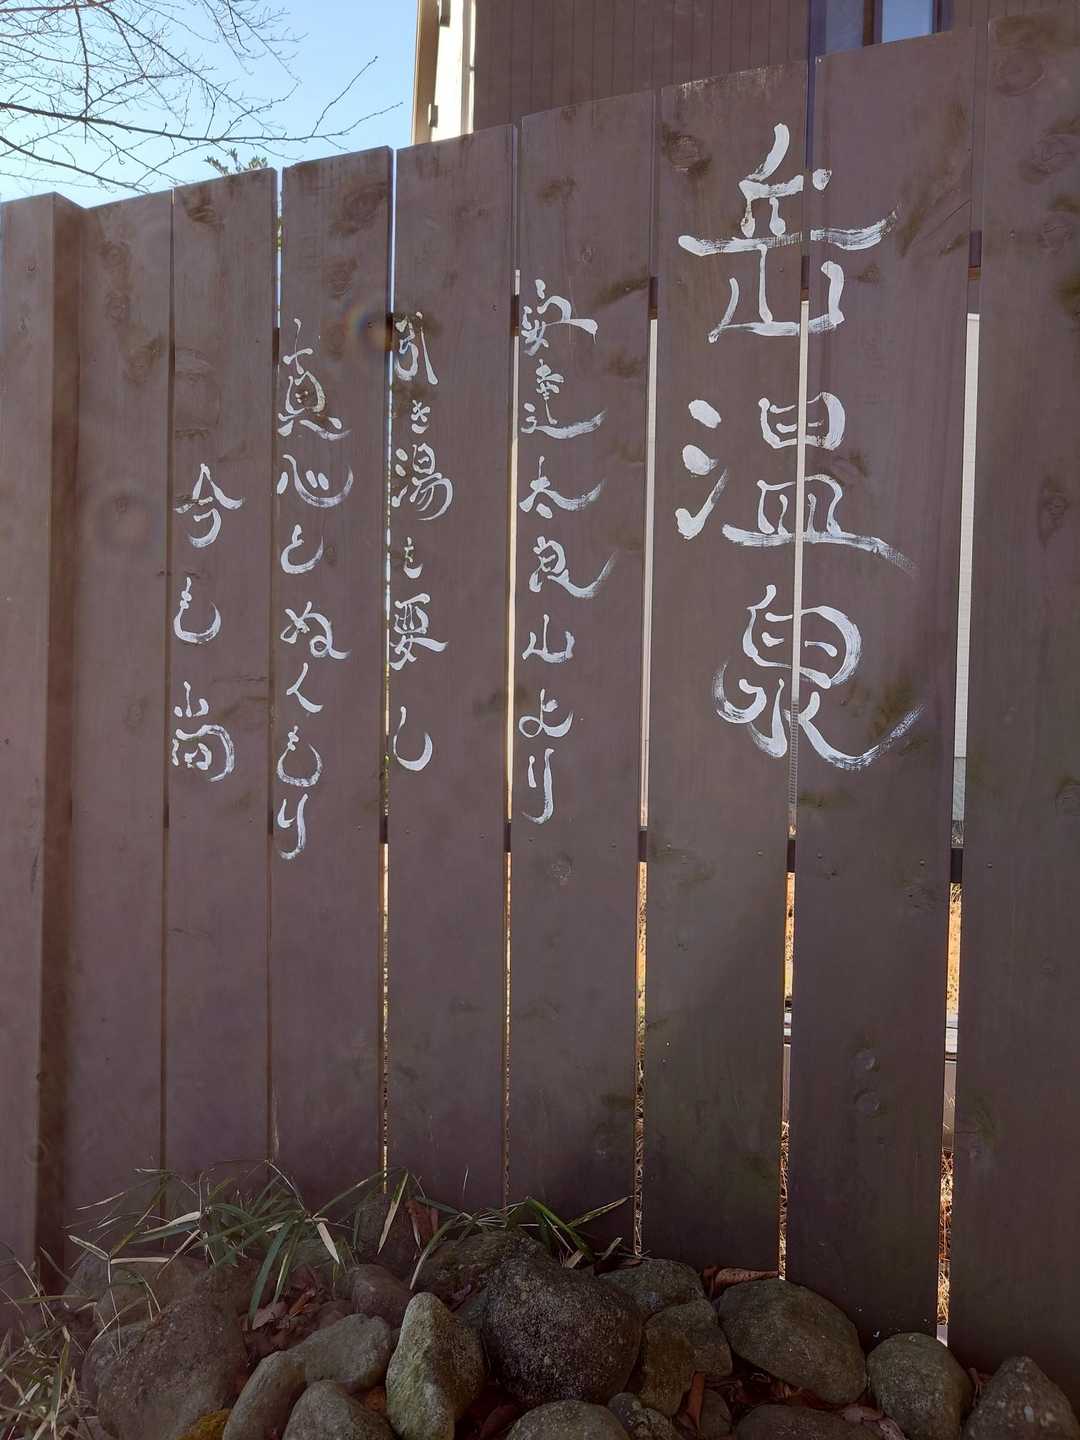 岳温泉
安達太良山より
引き湯も要し
真心とぬくもり
今も尚